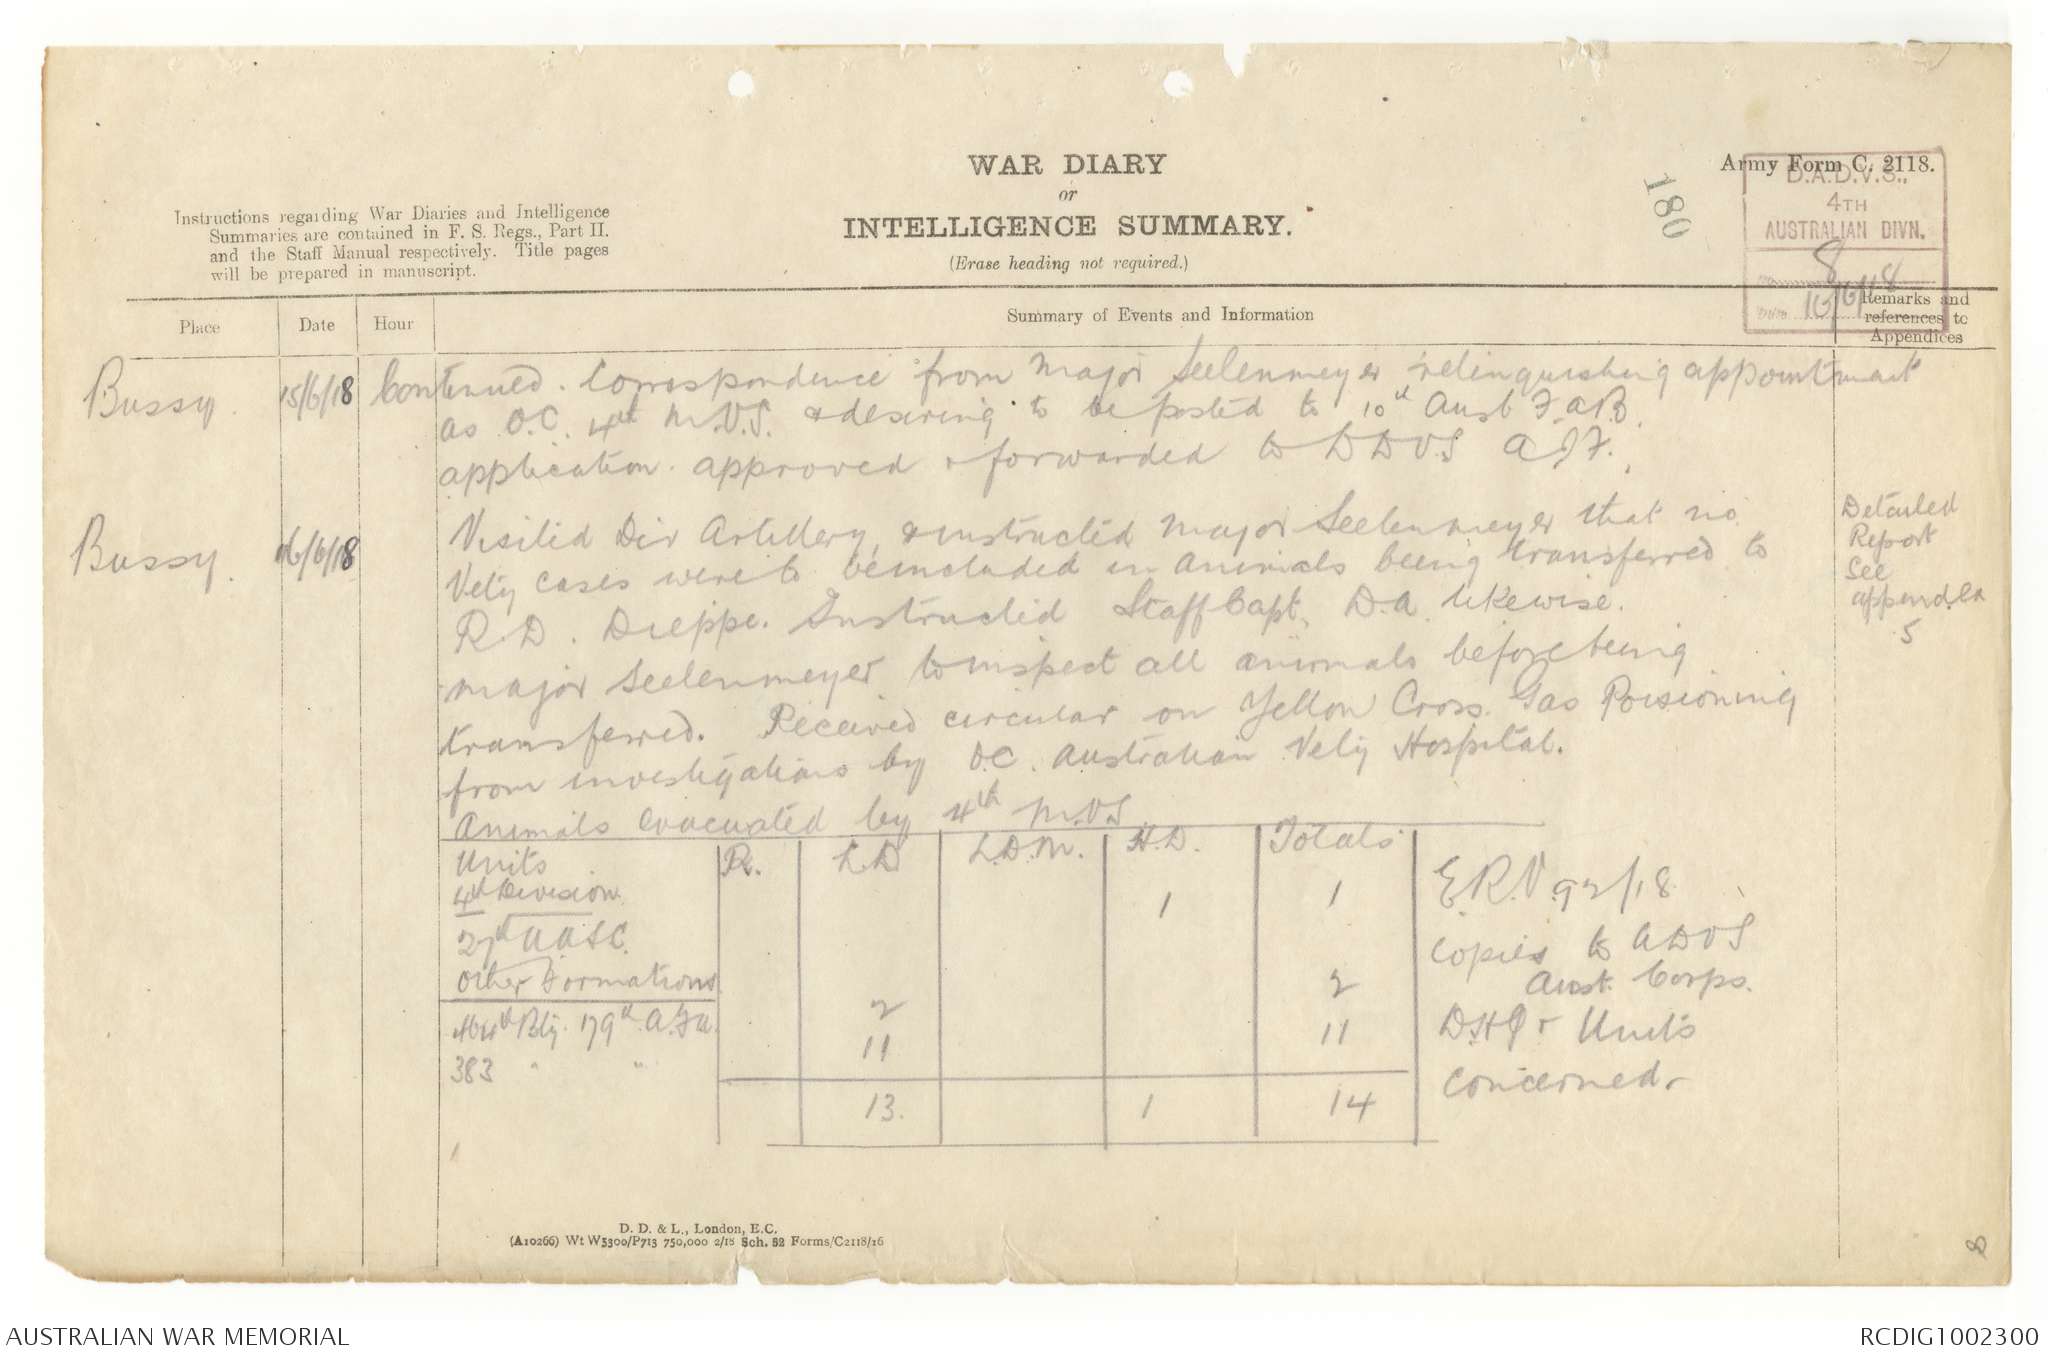 WAR DIARY
or
INTELLIGENCE SUMMARY.
(Erase heading not required.)
Army Form C. 2118.
180
D.A.D.V.S.,
4TH
AUSTRALIAN DIVN.
8
16/6/18
Instructions regarding War Diaries and Intelligence
Summaries are contained in F. S. Regs., Part II.
and the Staff Manual respectively. Title pages
will be prepared in manuscript.
Place Date Hour Summary of Events and Information Remarks and
references to
Appendices
Bussy. 15/6/18 Continued. Correspondence from Major Seelenmeyer relinquishing appointment
as O.C. 4th M.V.S. & desiring to be posted to 10th Aust F.A.B.
application approved & forwarded to DDVS AIF.
Bussy. 16/6/18 Visited Div Artillery, & instructed Major Seelenmeyer that no
Vety cases were to be included in animals being transferred to
R.D. Dieppe. Instructed Staff Capt. D.A. likewise.
Major Seelenmeyer to inspect all animals before being
transferred. Received circular on Yellow Cross Gas Poisioning
from investigations by O.C. Australian Vety Hospital.
Detailed
Report
See
appendix
5
Animals evacuated by 4th M.V.S.
Units R. L.D L.D.M. H.D. Totals
4th Division 1 1
27th AASC.
Other Formations
464th Bty. 179th A.F.A. 2 2
383 " " 11 11
13. 1 14
E.R.V. 92/18
Copies to ADVS
Aust. Corps.
DHQ & Units
Concerned.
D. D. & L., London, E.C.
(A10266) Wt W5300/P713 750,000 2/18 Sch. 52 Forms/C2118/16
8
AUSTRALIAN WAR MEMORIAL
RCDIG1002300